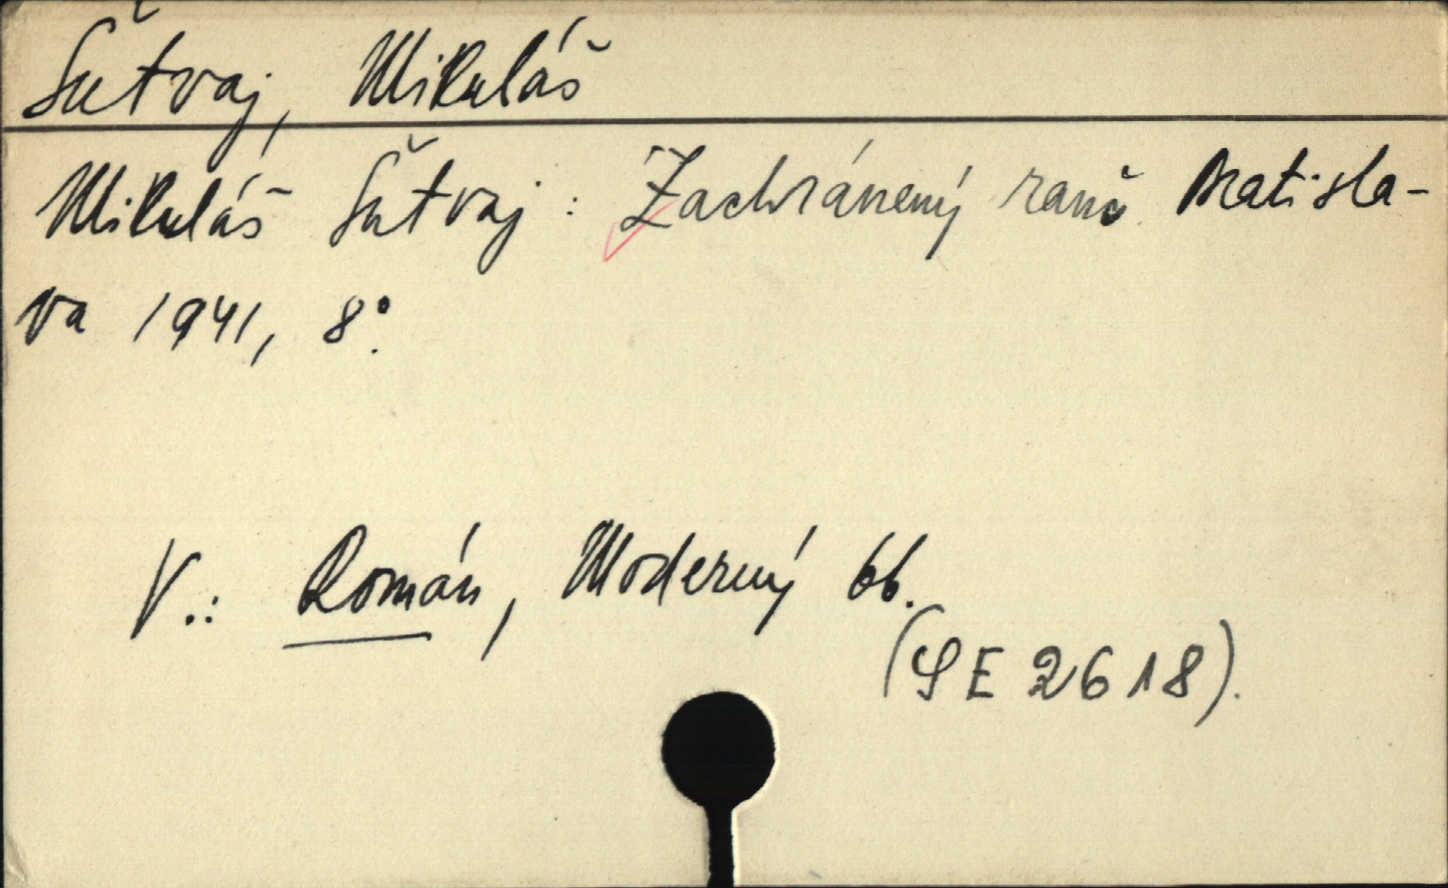 Šutvaj, Mikuláš
Mikuláš Šutvaj: Zachránený ranč Bratisla-
va 1941, 8°.
V.: Román, Moderný 66.
(SE 2618).